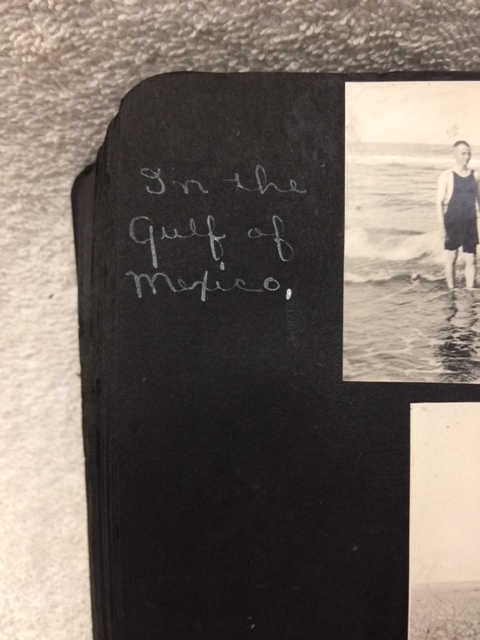 In the
Gulf of
Mexico.